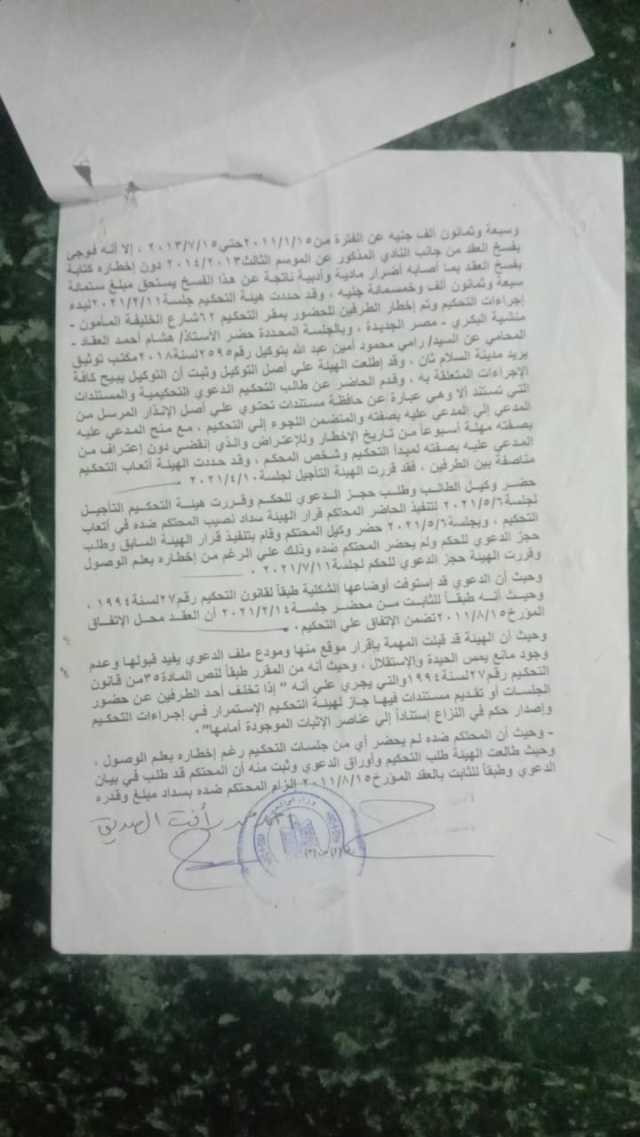 وسبعة وثمانون ألف جنيه عن الفترة من ٢٠١١/١/١٥ حتي ٢٠١٣/٧/١٥ ، إلا أنه فوجئ
بفسخ العقد من جانب النادي المذكور عن الموسم الثالث ٢٠١٤/٢٠١٣ دون إخطاره كتابة
بفسخ العقد بما أصابه أضرار مادية وأدبية ناتجة عن هذا الفسخ يستحق مبلغ ستمائة
سبعة وثمانون ألف وخمسمائة جنيه ، وقد حددت هيئة التحكيم جلسة ٢٠٢١/٢/١١ لبدء
إجراءات التحكيم وتم إخطار الطرفين للحضور بمقر التحكيم ٦٢ شارع الخليفة المأمون -
منشية البكري - مصر الجديدة ، وبالجلسة المحددة حضر الأستاذ/ هشام أحمد العقاد -
المحامي عن السيد/ رامي محمود أمين عبد الله بتوكيل رقم ٢٥٩٥ لسنة ٢٠١٨ مكتب توثيق
بريد مدينة السلام ثان ، وقد إطلعت الهيئة علي أصل التوكيل وثبت أن التوكيل يبيح كافة
الإجراءات المتعلقة به ، وقدم الحاضر عن طالب التحكيم الدعوي التحكيمية والمستندات
التي تستند ألا وهي عبارة عن حافظة مستندات تحتوي علي أصل الإنذار المرسل من
المدعي إلي المدعي عليه بصفته والمتضمن اللجوء إلي التحكيم ، مع منح المدعي عليه
بصفته مهلة أسبوعاً من تاريخ الإخطار وللإعتراض والذي إنقضي دون إعتراف من
المدعي عليه بصفته لمبدأ التحكيم وشخص المحكم ، وقد حددت الهيئة أتعاب التحكيم
مناصفة بين الطرفين ، فقد قررت الهيئة التأجيل لجلسة ٢٠٢١/٤/١٠
حضر وكيل الطالب وطلب حجز الدعوي للحكم وقررت هيئة التحكيم التأجيل
لجلسة ٢٠٢١/٥/٦ لتنفيذ الحاضر المحاكم قرار الهيئة سداد نصيب المحتكم ضده في أتعاب
التحكيم ، وبجلسة ٢٠٢١/٥/٦ حضر وكيل المحتكم وقام بتنفيذ قرار الهيئة السابق وطلب
حجز الدعوي للحكم ولم يحضر المحتكم ضده وذلك علي الرغم من إخطاره بعلم الوصول
وقررت الهيئة حجز الدعوي للحكم لجلسة ٢٠٢١/٧/١١ .
وحيث أن الدعوي قد إستوفت أوضاعها الشكلية طبقاً لقانون التحكيم رقم ٢٧ لسنة ١٩٩٤ ،
وحيث أنه طبقاً للثابت من محضر جلسة ٢٠٢١/٢/١٤ أن العقد محل الإتفاق
المؤرخ ٢٠١١/٨/١٥ تضمن الإتفاق علي التحكيم .
وحيث أن الهيئة قد قبلت المهمة بإقرار موقع منها ومودع ملف الدعوي يفيد قبولها وعدم
وجود مانع يمس الحيدة والإستقلال ، وحيث أنه من المقرر طبقاً لنص المادة ٣٥ من قانون
التحكيم رقم ٢٧ لسنة ١٩٩٤ والتي يجري علي أنه " إذا تخلف أحد الطرفين عن حضور
الجلسات أو تقديم مستندات فيها جاز لهيئة التحكيم الإستمرار في إجراءات التحكيم
وإصدار حكم في النزاع إستناداً إلي عناصر الإثبات الموجودة أمامها" .
- وحيث أن المحتكم ضده لم يحضر أي من جلسات التحكيم رغم إخطاره بعلم الوصول ،
وحيث طالعت الهيئة طلب التحكيم وأوراق الدعوي وثبت منه أن المحتكم قد طلب في بيان
الدعوي وطبقاً للثابت بالعقد المؤرخ ٢٠١١/٨/١٥ إلزام المحتكم ضده بسداد مبلغ وقدره
رأفت الصديق